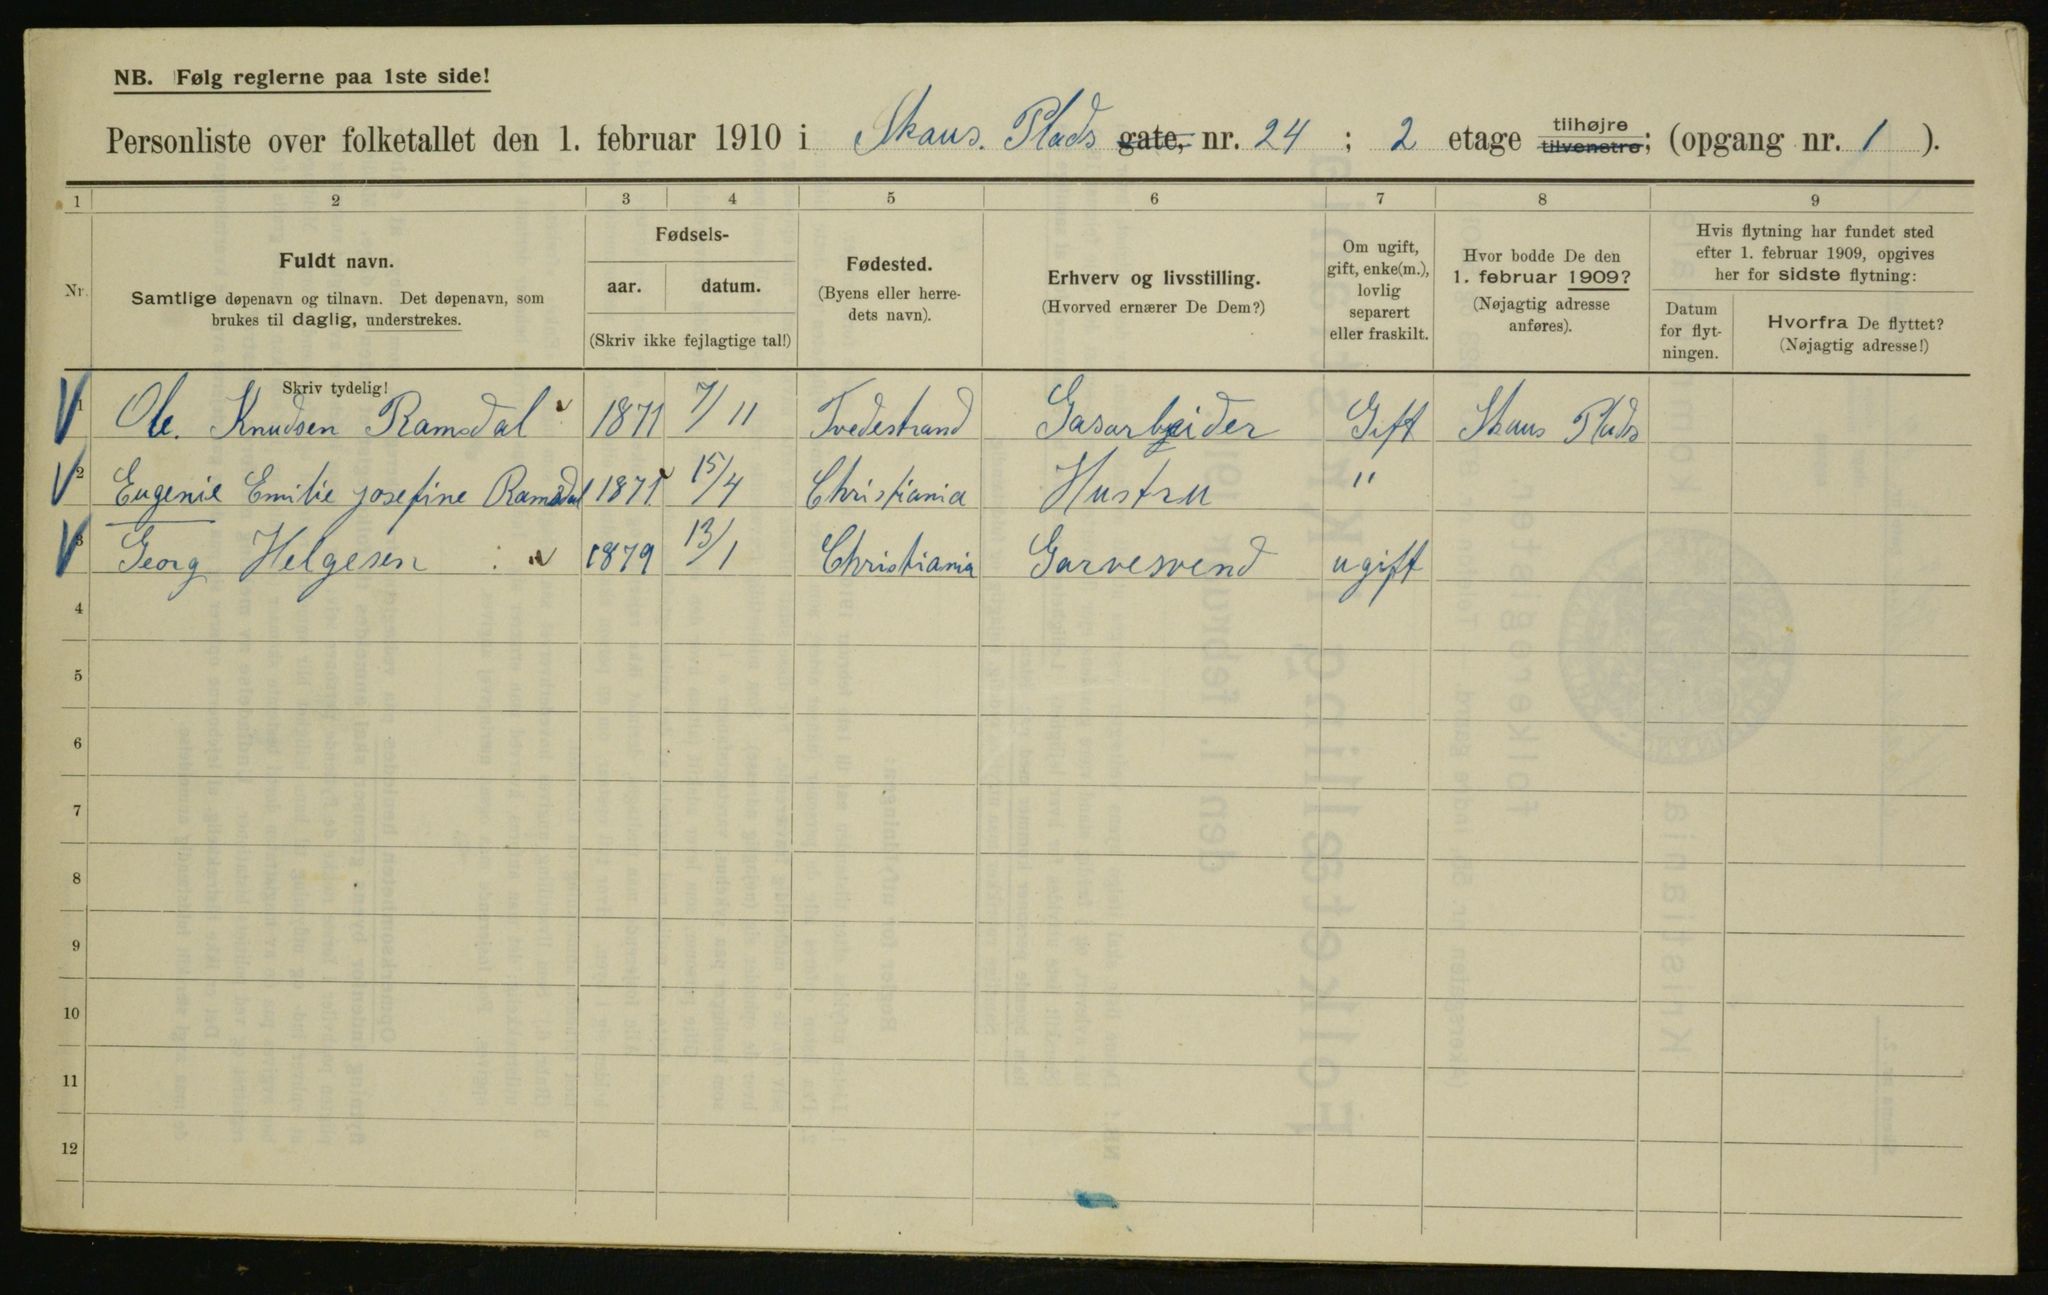 NB. Følg reglerne paa 1ste side!
Personliste over folketallet den 1. februar 1910 i Skaus. Plads gate, nr. 24 ; 2 etage tilhøjre tilvenstre; (opgang nr. 1 ).
1 2 3 4 5 6 7 8 9
Nr. Fuldt navn. Samtlige døpenavn og tilnavn. Det døpenavn, som brukes til daglig, understrekes.
Fødsels- aar. datum. (Skriv ikke fejlagtige tal!)
Fødested. (Byens eller herredets navn).
Erhverv og livsstilling. (Hvorved ernærer De Dem?)
Om ugift, gift, enke(m.), lovlig separert eller fraskilt.
Hvor bodde De den 1. februar 1909? (Nøjagtig adresse anføres).
Hvis flytning har fundet sted efter 1. februar 1909, opgives her for sidste flytning:
Datum for flytningen.
Hvorfra De flyttet? (Nøjagtig adresse!)
Skriv tydelig!
1 Ole. Knudsen Ramsdal 1871 7/11 Tvedestrand Gasarbeider Gift Skaus Plads
2 Eugenie Emilie Josefine Ramsdal 1871 15/4 Christiania Hustru "
3 Georg Helgesen 1879 13/1 Christiania Garvesvend ugift
4
5
6
7
8
9
10
11
12